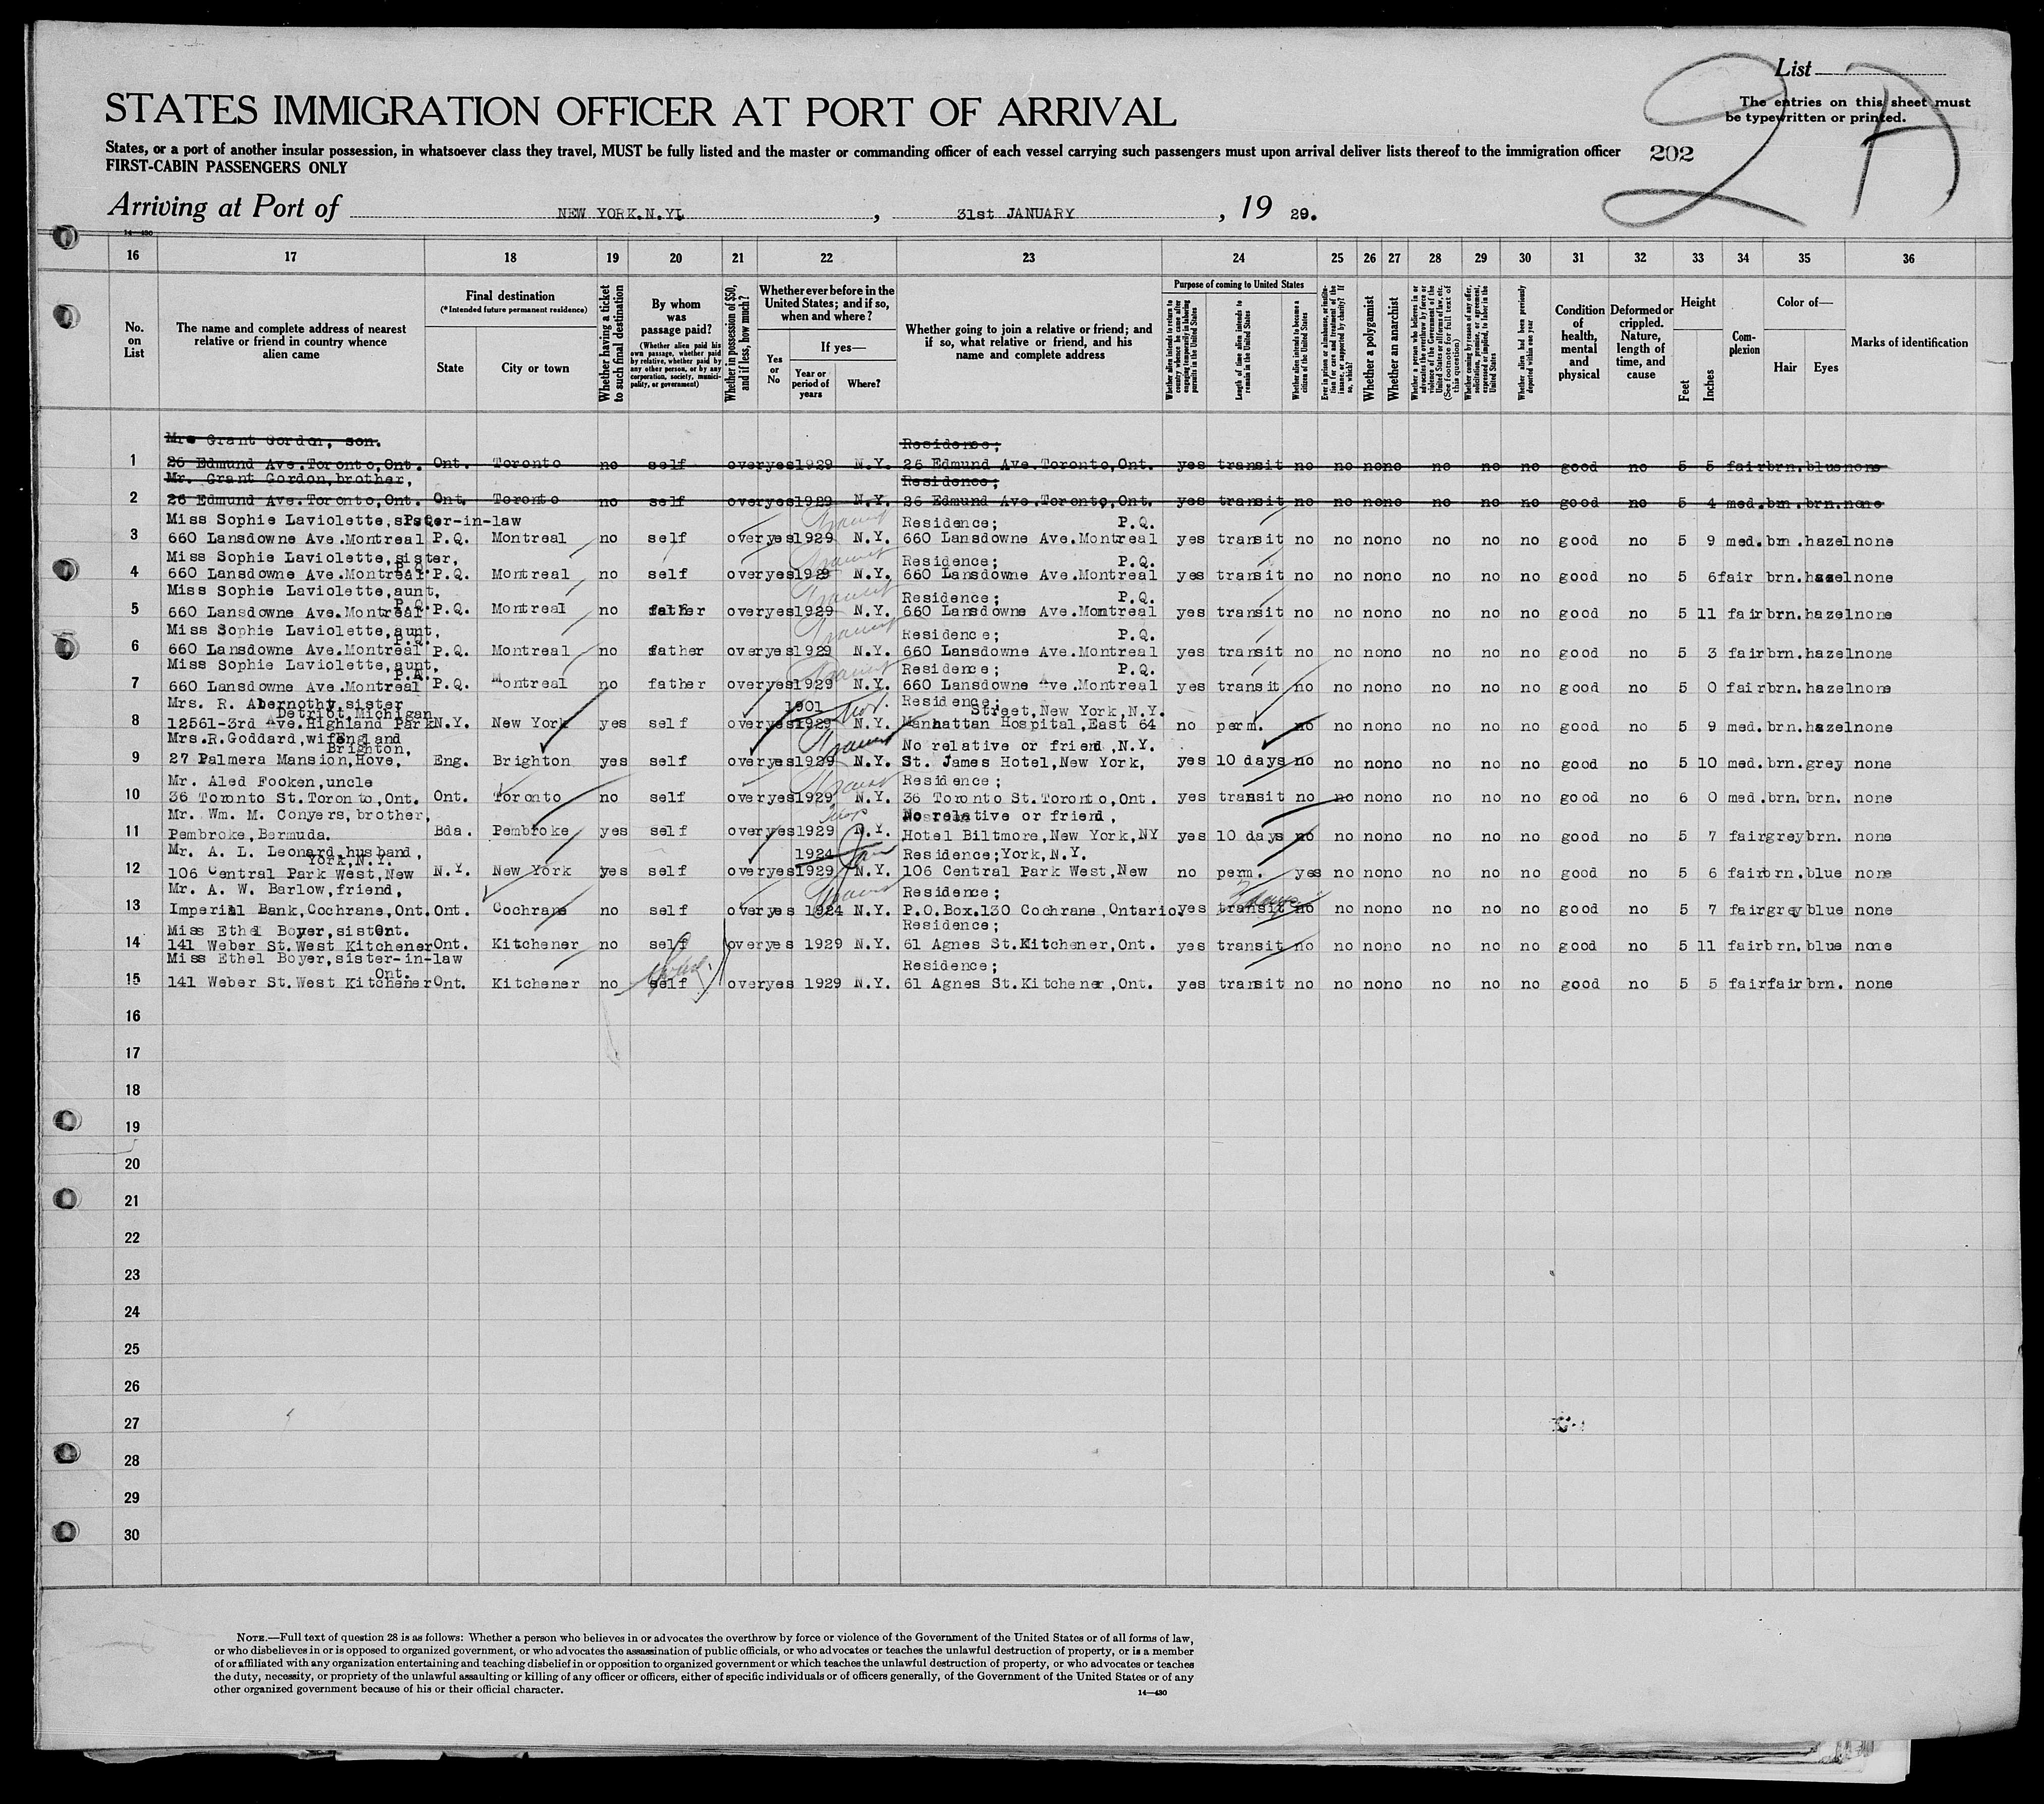 List
The entries on this sheet must
be typewritten or printed.
2 A
STATES IMMIGRATION OFFICER AT PORT OF ARRIVAL
States, or a port of another insular possession, in whatsoever class they travel, MUST be fully listed and the master or commanding officer of each vessel carrying such passengers must upon arrival deliver lists thereof to the immigration officer
202
FIRST-CABIN PASSENGERS ONLY
Arriving at Port of NEW YORK.N.Y. , 31st JANUARY , 19 29.
14—430
16 17 18 19 20 21 22 23 24 25 26 27 28 29 30 31 32 33 34 35 36
No. on List
The name and complete address of nearest relative or friend in country whence alien came
Final destination
(*Intended future permanent residence)
State
City or town
Whether having a ticket to such final destination
By whom was passage paid?
(Whether alien paid his own passage, whether paid by relative, whether paid by any other person, or by any corporation, society, municipality, or government)
Whether in possession of $50, and if less, how much?
Whether ever before in the United States; and if so, when and where?
Yes or No
If yes—
Year or period of years
Where?
Whether going to join a relative or friend; and if so, what relative or friend, and his name and complete address
Purpose of coming to United States
Whether alien intends to return to country whence he came after engaging temporarily in laboring pursuits in the United States
Length of time alien intends to remain in the United States
Whether alien intends to become a citizen of the United States
Ever in prison or almshouse, or institution for care and treatment of the insane, or supported by charity? If so, which?
Whether a polygamist
Whether an anarchist
Whether a person who believes in or advocates the overthrow by force or violence of the Government of the United States or all forms of law, etc. (See footnote for full text of this question)
Whether coming by reason of any offer, solicitation, promise, or agreement, expressed or implied, to labor in the United States
Whether alien had been previously deported within one year
Condition of health, mental and physical
Deformed or crippled. Nature, length of time, and cause
Height
Feet
Inches
Complexion
Color of—
Hair
Eyes
Marks of identification
Mrs Grant Gordon, son. Residence;
1 26 Edmund Ave.Toronto,Ont. Ont. Toronto no self over yes 1929 N.Y. 26 Edmund Ave.Toronto,Ont. yes transit no no no no no no no good no 5 5 fair brn. blue none
Mr. Grant Gordon,brother, Residence;
2 26 Edmund Ave.Toronto,Ont. Ont. Toronto no self over yes 1929 N.Y. 26 Edmund Ave.Toronto,Ont. yes transit no no no no no no no good no 5 4 med. brn. brn. none
Miss Sophie Laviolette,sister-in-law P.Q. Transit Residence; P.Q.
3 660 Lansdowne Ave.Montreal P.Q. Montreal no self over yes 1929 N.Y. 660 Lansdowne Ave.Montreal yes transit no no no no no no no good no 5 9 med. brn. hazel none
Miss Sophie Laviolette,sister, P.Q. Transit Residence; P.Q.
4 660 Lansdowne Ave.Montreal. P.Q. Montreal no self over yes 1929 N.Y. 660 Lansdowne Ave.Montreal yes transit no no no no no no no good no 5 6 fair brn. hazel none
Miss Sophie Laviolette,aunt, P.Q. Transit Residence; P.Q.
5 660 Lansdowne Ave.Montreal P.Q. Montreal no father over yes 1929 N.Y. 660 Lansdowne Ave.Montreal yes transit no no no no no no no good no 5 11 fair brn. hazel none
Miss Sophie Laviolette,aunt, P.Q. Transit Residence; P.Q.
6 660 Lansdowne Ave.Montreal P.Q. Montreal no father over yes 1929 N.Y. 660 Lansdowne Ave.Montreal yes transit no no no no no no no good no 5 3 fair brn. hazel none
Miss Sophie Laviolette,aunt, P.A. Transit Residence; P.Q.
7 660 Lansdowne Ave.Montreal P.Q. Montreal no father over yes 1929 N.Y. 660 Lansdowne Ave.Montreal yes transit no no no no no no no good no 5 0 fair brn. hazel none
Mrs. R. Abernothy,sister Detriot,Michigan 1901 Residence; Street,New York,N.Y.
8 12561-3rd Ave.Highland Park N.Y. New York yes self over yes 1929 N.Y. Manhattan Hospital,East 64 no perm. no no no no no no no good no 5 9 med. brn. hazel none
Mrs.R.Goddard,wife England Brighton, Transit No relative or friend,N.Y.
9 27 Palmera Mansion,Hove, Eng. Brighton yes self over yes 1929 N.Y. St. James Hotel,New York, yes 10 days no no no no no no no good no 5 10 med. brn. grey none
Mr. Aled Fooken,uncle Transit Residence;
10 36 Toronto St.Toronto,Ont. Ont. Toronto no self over yes 1929 N.Y. 36 Toronto St.Toronto,Ont. yes transit no no no no no no no good no 6 0 med. brn. brn. none
Mr. Wm. M. Conyers,brother, No relative or friend,
11 Pembroke,Bermuda. Bda. Pembroke yes self over yes 1929 N.Y. Hotel Biltmore,New York,NY yes 10 days no no no no no no no good no 5 7 fair grey brn. none
Mr. A. L. Leonard,husband, York,N.Y. 1924 Residence;York,N.Y.
12 106 Central Park West,New N.Y. New York yes self over yes 1929 N.Y. 106 Central Park West,New no perm. yes no no no no no no good no 5 6 fair brn. blue none
Mr. A. W. Barlow,friend, Transit Residence; 2 days
13 Imperial Bank,Cochrane,Ont. Ont. Cochrane no self over yes 1924 N.Y. P.O.Box.130 Cochrane,Ontario. yes transit no no no no no no no good no 5 7 fair grey blue none
Miss Ethel Boyer,sister Ont. Residence;
14 141 Weber St.West Kitchener Ont. Kitchener no self over yes 1929 N.Y. 61 Agnes St.Kitchener,Ont. yes transit no no no no no no no good no 5 11 fair brn. blue none
Miss Ethel Boyer,sister-in-law Ont. Residence;
15 141 Weber St.West Kitchener Ont. Kitchener no self over yes 1929 N.Y. 61 Agnes St.Kitchener,Ont. yes transit no no no no no no no good no 5 5 fair fair brn. none
16
17
18
19
20
21
22
23
24
25
26
27
28
29
30
NOTE.—Full text of question 28 is as follows: Whether a person who believes in or advocates the overthrow by force or violence of the Government of the United States or of all forms of law,
or who disbelieves in or is opposed to organized government, or who advocates the assassination of public officials, or who advocates or teaches the unlawful destruction of property, or is a member
of or affiliated with any organization entertaining and teaching disbelief in or opposition to organized government or which teaches the unlawful destruction of property, or who advocates or teaches
the duty, necessity, or propriety of the unlawful assaulting or killing of any officer or officers, either of specific individuals or of officers generally, of the Government of the United States or of any
other organized government because of his or their official character.
14—430